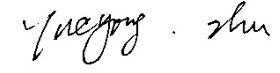 Yueyong . zhu